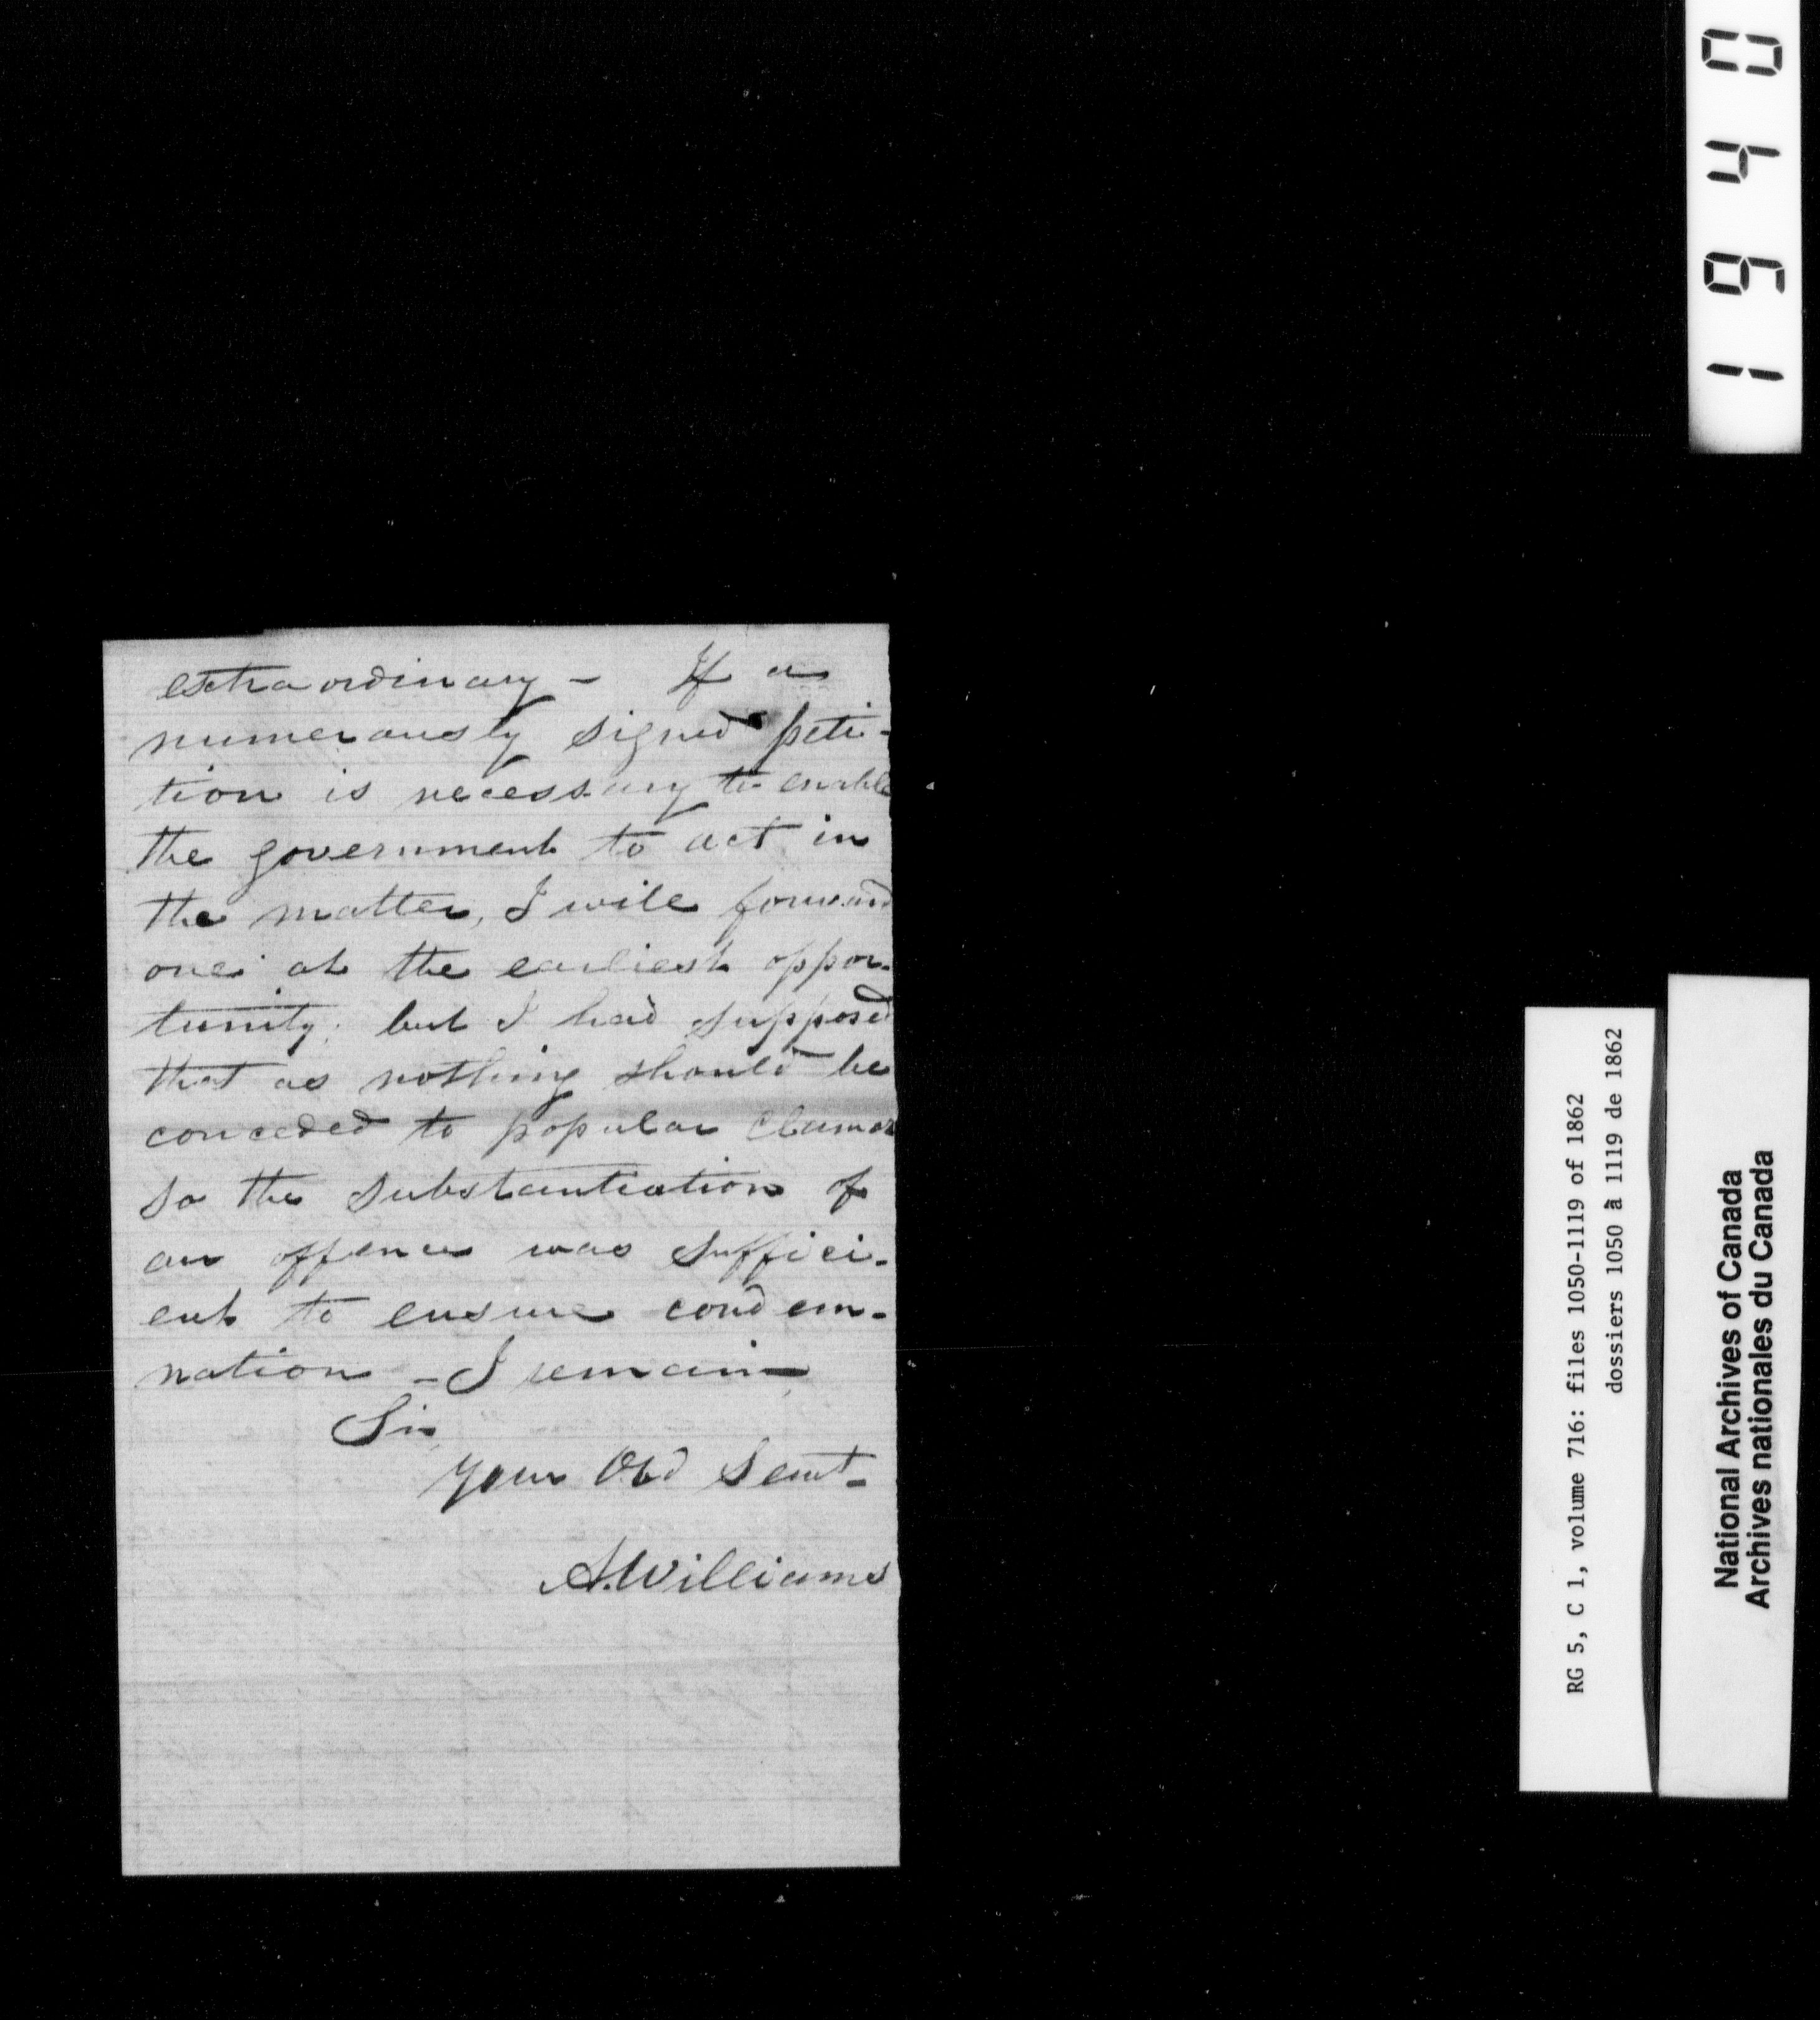 extraordinary - If a
numerously signed peti-
tion is necessary to enable
the government to act in
the matter, I will forward
one at the earliest oppor-
tunity; but I had supposed
that as nothing should be
conceded to popular clamor
so the substantiation of
an offence was suffici-
ent to ensure condem-
nation - I remain,
Sir,
your Obd Servt-
A. Williams
1940
RG 5, C 1, volume 716: files 1050-1119 of 1862
dossiers 1050 à 1119 de 1862
National Archives of Canada
Archives nationales du Canada